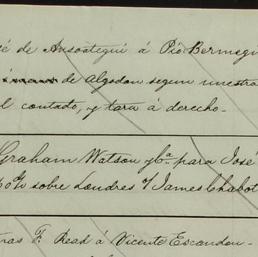 de Ansoategui á Pío Bermeg
de Algodon segun muestra
contado, y tara á derecho.
Graham Watson y Ca. para José
sobre Londres J James Chabot
F. Read á Vicente Escandon